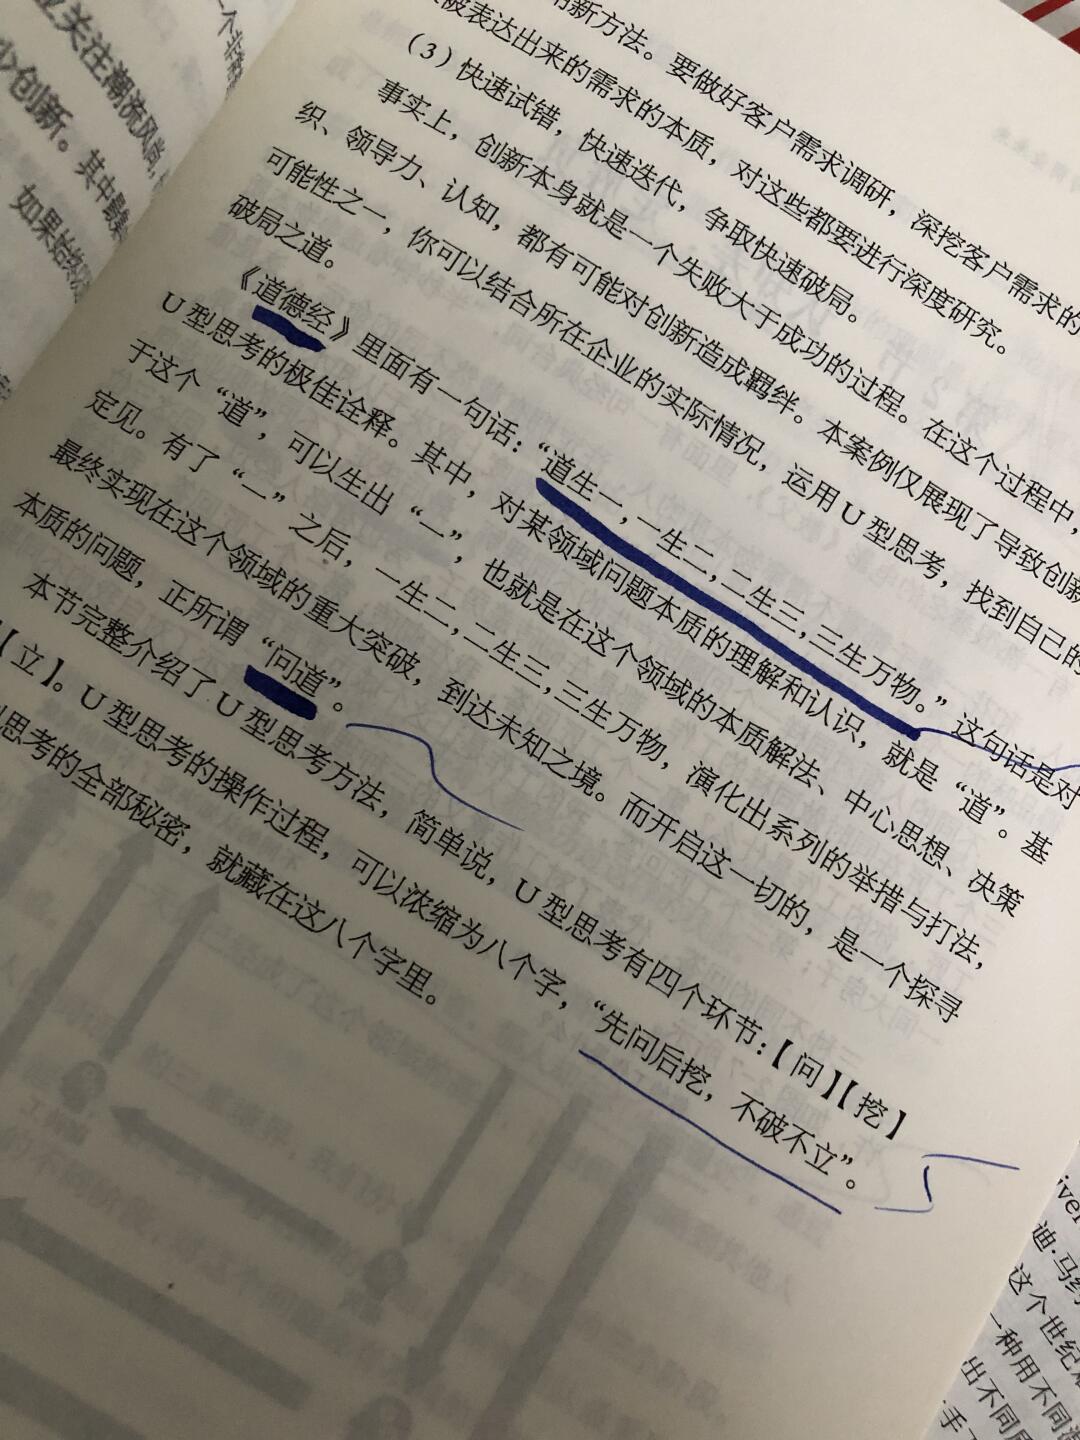 关注潮流风尚
少创新。其中
如果始终
新方法。要做好客户需求调研，深挖客户需求的
被表达出来的需求的本质，对这些都要进行深度研究。
（3）快速试错，快速迭代，争取快速破局。
事实上，创新本身就是一个失败大于成功的过程。在这个过程中，
织、领导力、认知，都有可能对创新造成羁绊。本案例仅展现了导致创新
可能性之一，你可以结合所在企业的实际情况，运用U型思考，找到自己的
破局之道。
《道德经》里面有一句话：“道生一，一生二，二生三，三生万物。”这句话是对
U型思考的极佳诠释。其中，对某领域问题本质的理解和认识，就是“道”。基
于这个“道”，可以生出“一”，也就是在这个领域的本质解法、中心思想、决策
定见。有了“一”之后，一生二，二生三，三生万物，演化出系列的举措与打法，
最终实现在这个领域的重大突破，到达未知之境。而开启这一切的，是一个探寻
本质的问题，正所谓“问道”。
本节完整介绍了U型思考方法，简单说，U型思考有四个环节：【问】【挖】
【立】。U型思考的操作过程，可以浓缩为八个字，“先问后挖，不破不立”。
思考的全部秘密，就藏在这八个字里。
迪·马
这个世纪
一种用不同
出不同
手